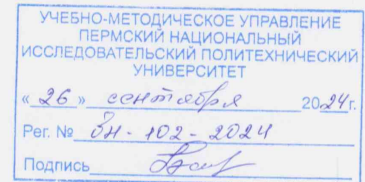 УЧЕБНО-МЕТОДИЧЕСКОЕ УПРАВЛЕНИЕ
ПЕРМСКИЙ НАЦИОНАЛЬНЫЙ
ИССЛЕДОВАТЕЛЬСКИЙ ПОЛИТЕХНИЧЕСКИЙ
УНИВЕРСИТЕТ
« 26 » сентября 2024г.
Рег. № ЗН-102-2024
Подпись